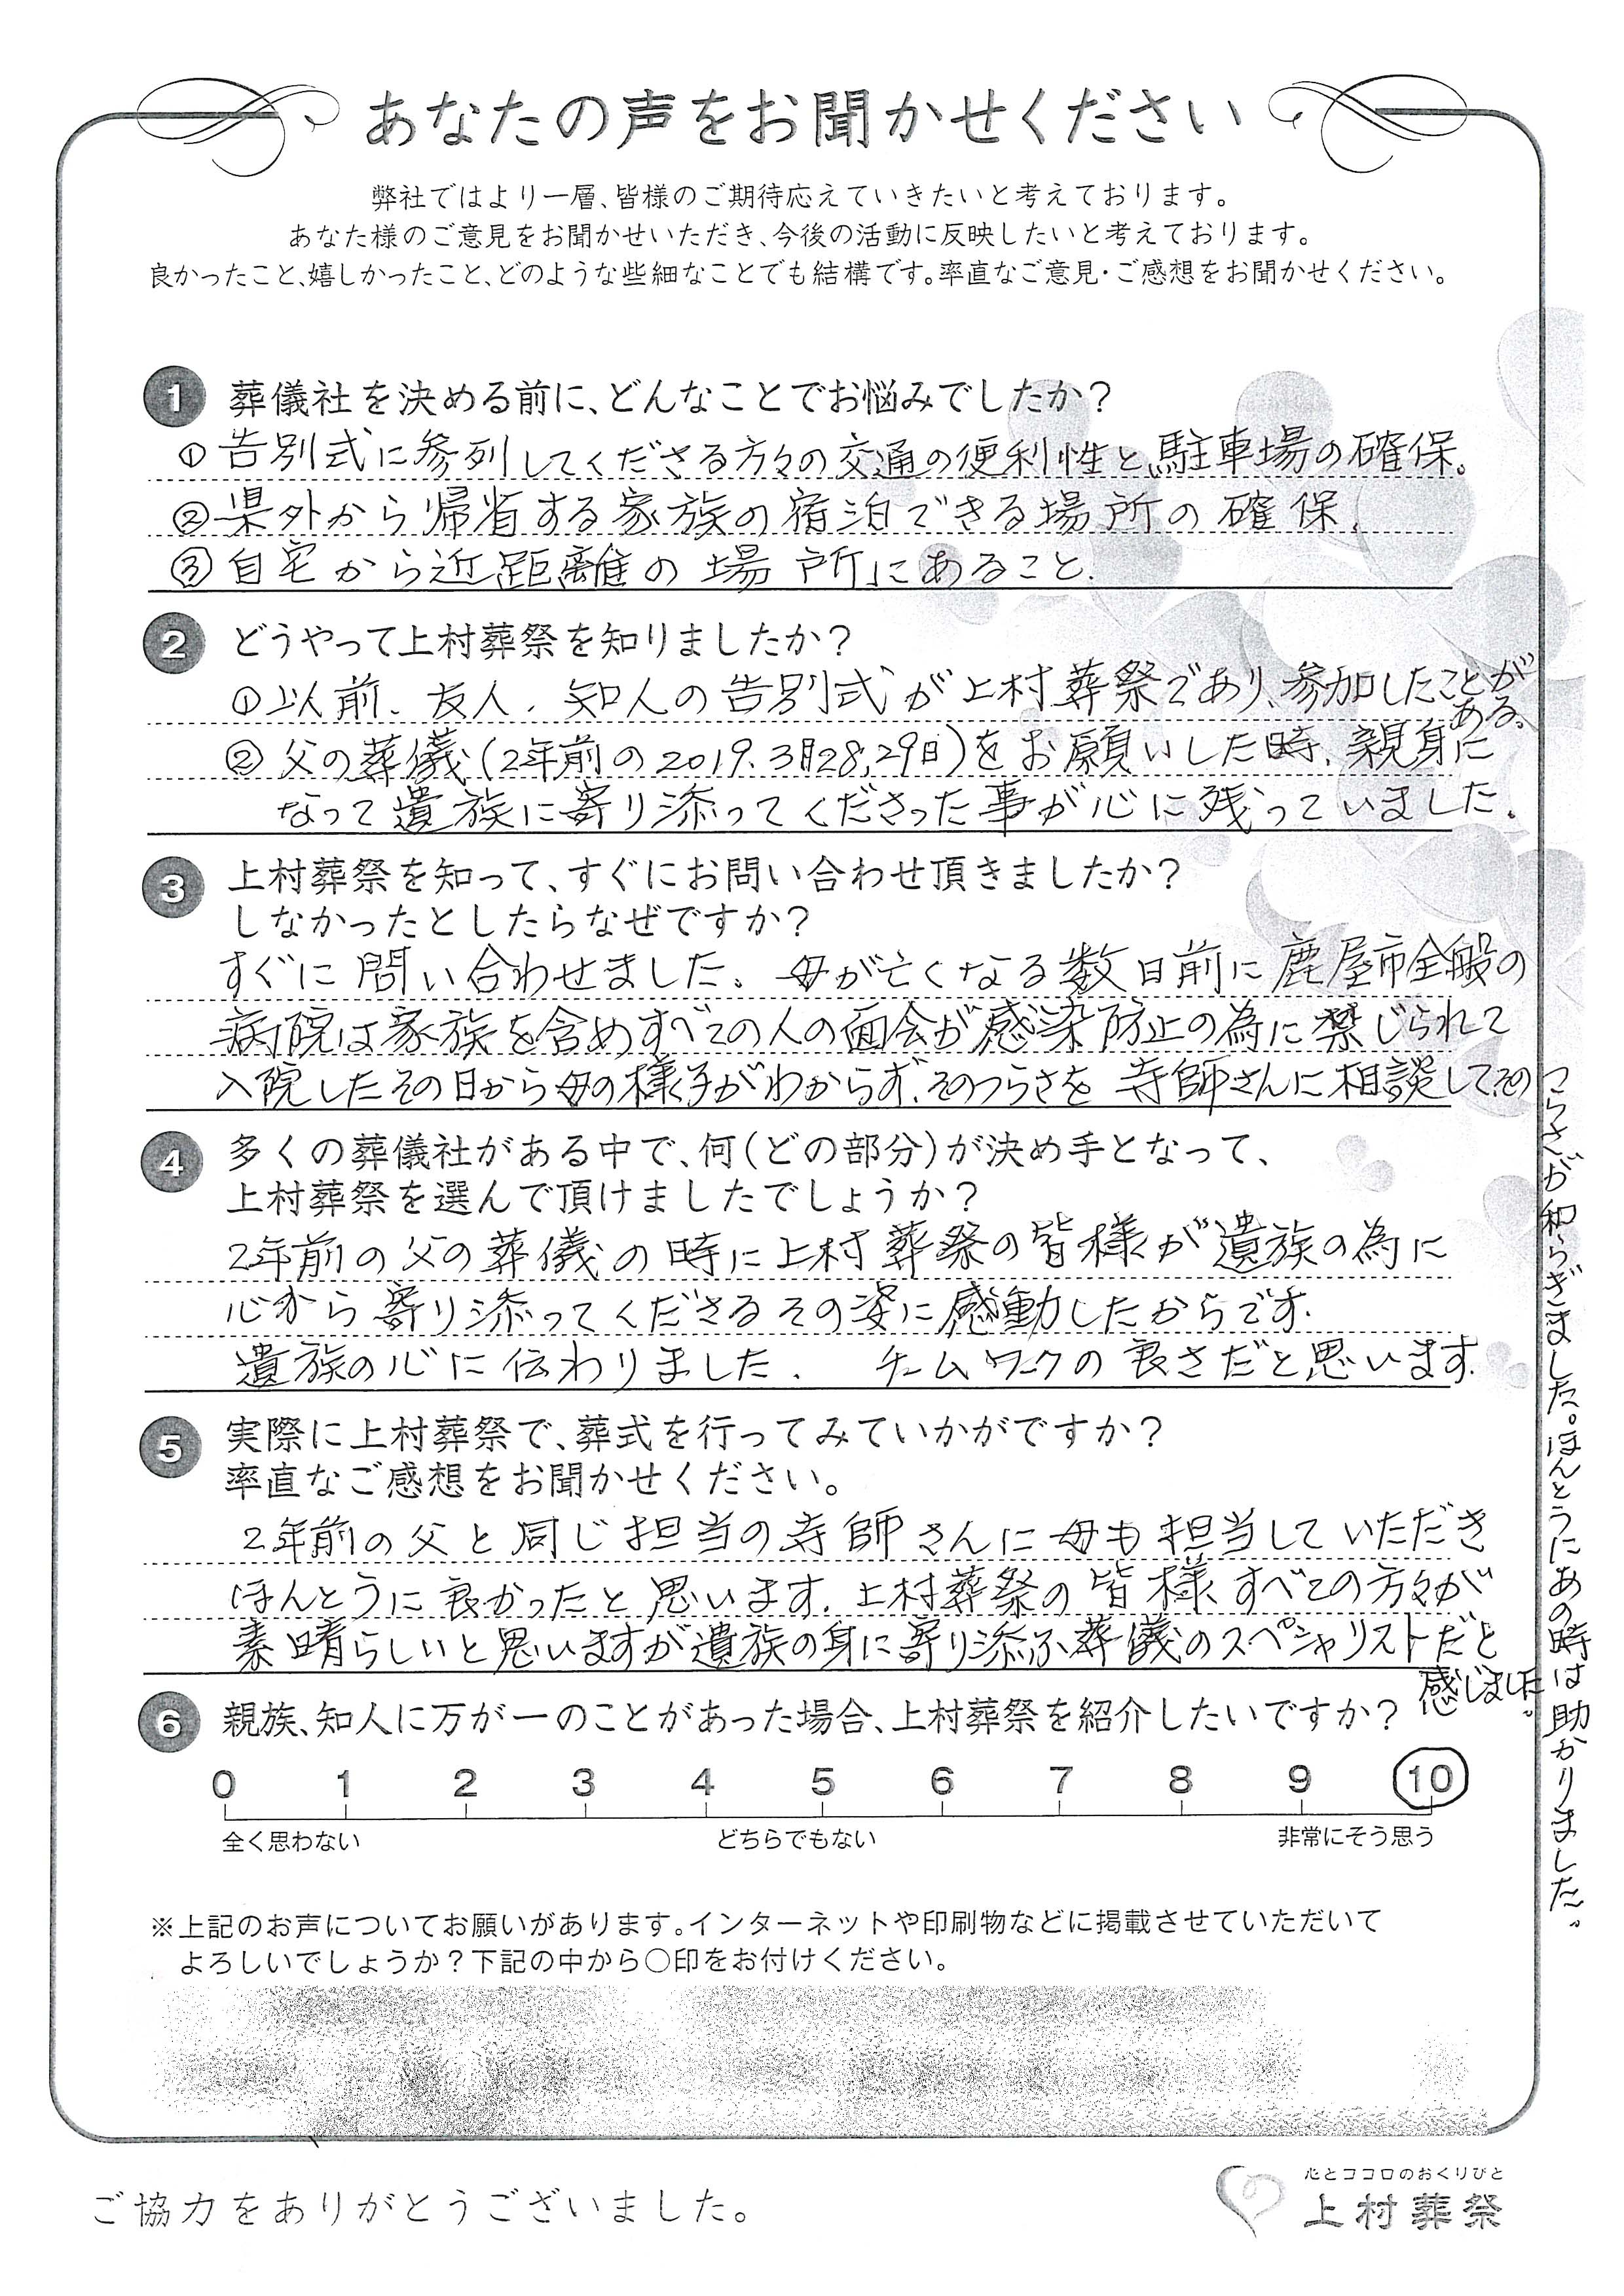 あなたの声をお聞かせください
弊社ではより一層、皆様のご期待応えていきたいと考えております。
あなた様のご意見をお聞かせいただき、今後の活動に反映したいと考えております。
良かったこと、嬉しかったこと、どのような些細なことでも結構です。率直なご意見・ご感想をお聞かせください。
1 葬儀社を決める前に、どんなことでお悩みでしたか？
①告別式に参列してくださる方々の交通の便利性と駐車場の確保。
②県外から帰省する家族の宿泊できる場所の確保.
③自宅から近距離の場所にあること.
2 どうやって上村葬祭を知りましたか？
①以前、友人、知人の告別式が上村葬祭であり、参加したことが
ある。
②父の葬儀(2年前の2019.3月28,29日)をお願いした時、親身に
なって遺族に寄り添ってくださった事が心に残っていました.
3 上村葬祭を知って、すぐにお問い合わせ頂きましたか？
しなかったとしたらなぜですか？
すぐに問い合わせました。母が亡くなる数日前に鹿屋市全般の
病院は家族を含めすべての人の面会が感染防止の為に禁じられて
入院したその日から母の様子がわからず、そのつらさを寺師さんに相談して、その
つらさが和らぎました。ほんとうにあの時は助かりました。
4 多くの葬儀社がある中で、何(どの部分)が決め手となって、
上村葬祭を選んで頂けましたでしょうか？
2年前の父の葬儀の時に上村葬祭の皆様が遺族の為に
心から寄り添ってくださるその姿に感動したからです.
遺族の心に伝わりました. チームワークの良さだと思います.
5 実際に上村葬祭で、葬式を行ってみていかがですか？
率直なご感想をお聞かせください。
2年前の父と同じ担当の寺師さんに母も担当していただき
ほんとうに良かったと思います.上村葬祭の皆様すべての方々が
素晴らしいと思いますが遺族の身に寄り添ふ葬儀のスペシャリストだと
感じました。
6 親族、知人に万が一のことがあった場合、上村葬祭を紹介したいですか？
0 1 2 3 4 5 6 7 8 9 10
全く思わない どちらでもない 非常にそう思う
※上記のお声についてお願いがあります。インターネットや印刷物などに掲載させていただいて
よろしいでしょうか？下記の中から○印をお付けください。
ご協力をありがとうございました。
心とココロのおくりびと
上村葬祭